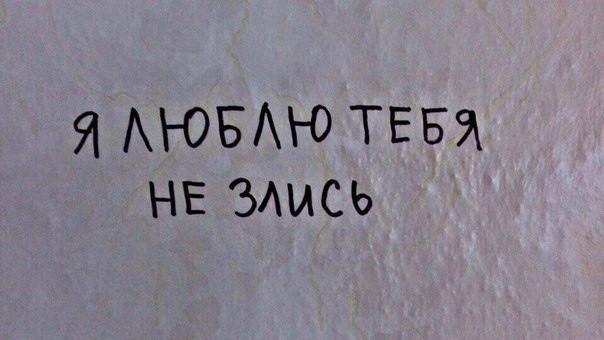 Я ЛЮБЛЮ ТЕБЯ
НЕ ЗЛИСЬ